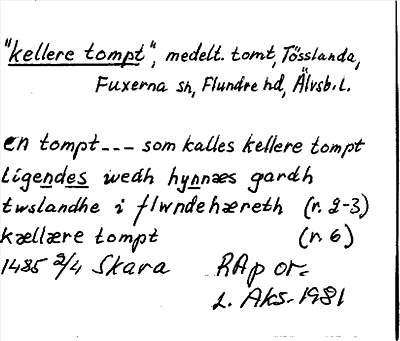 "kellere tompt", medelt. tomt, Tösslanda,
Fuxerna sn, Flundre hd, Älvsb.l.
en tompt--- som kalles kellere tompt
ligendes wedh hynnæs gardh
twslandhe i flwndehæreth (r. 2-3)
kællære tompt (r. 6)
1485 2/4 Skara RAp or.
L. Aks. 1981